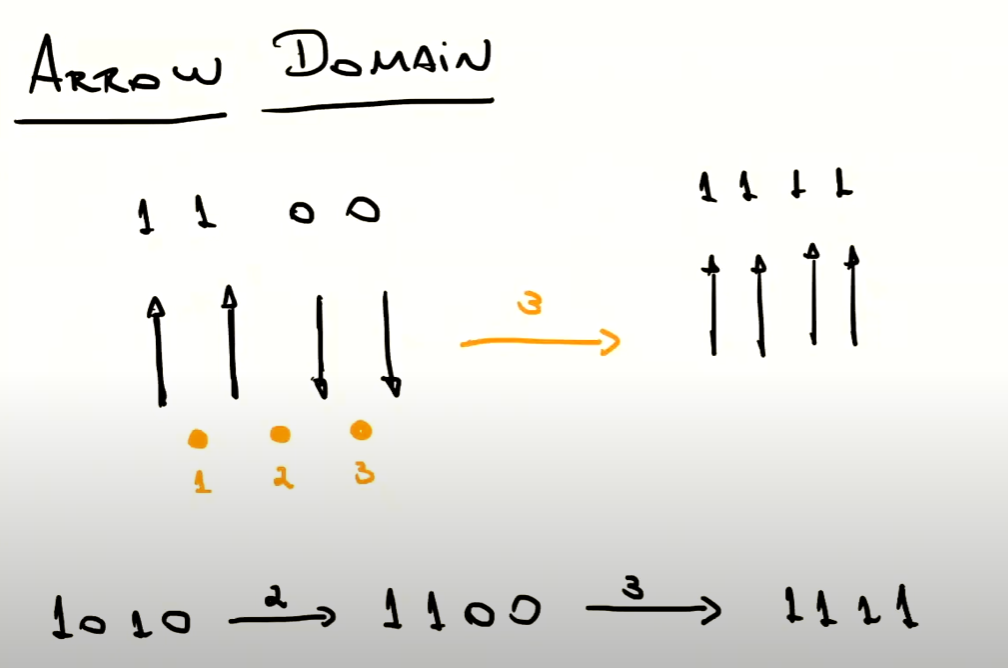 ARROW DOMAIN
1 1 0 0
1 1 1 1
3
1 2 3
1010 2 1100 3 1111